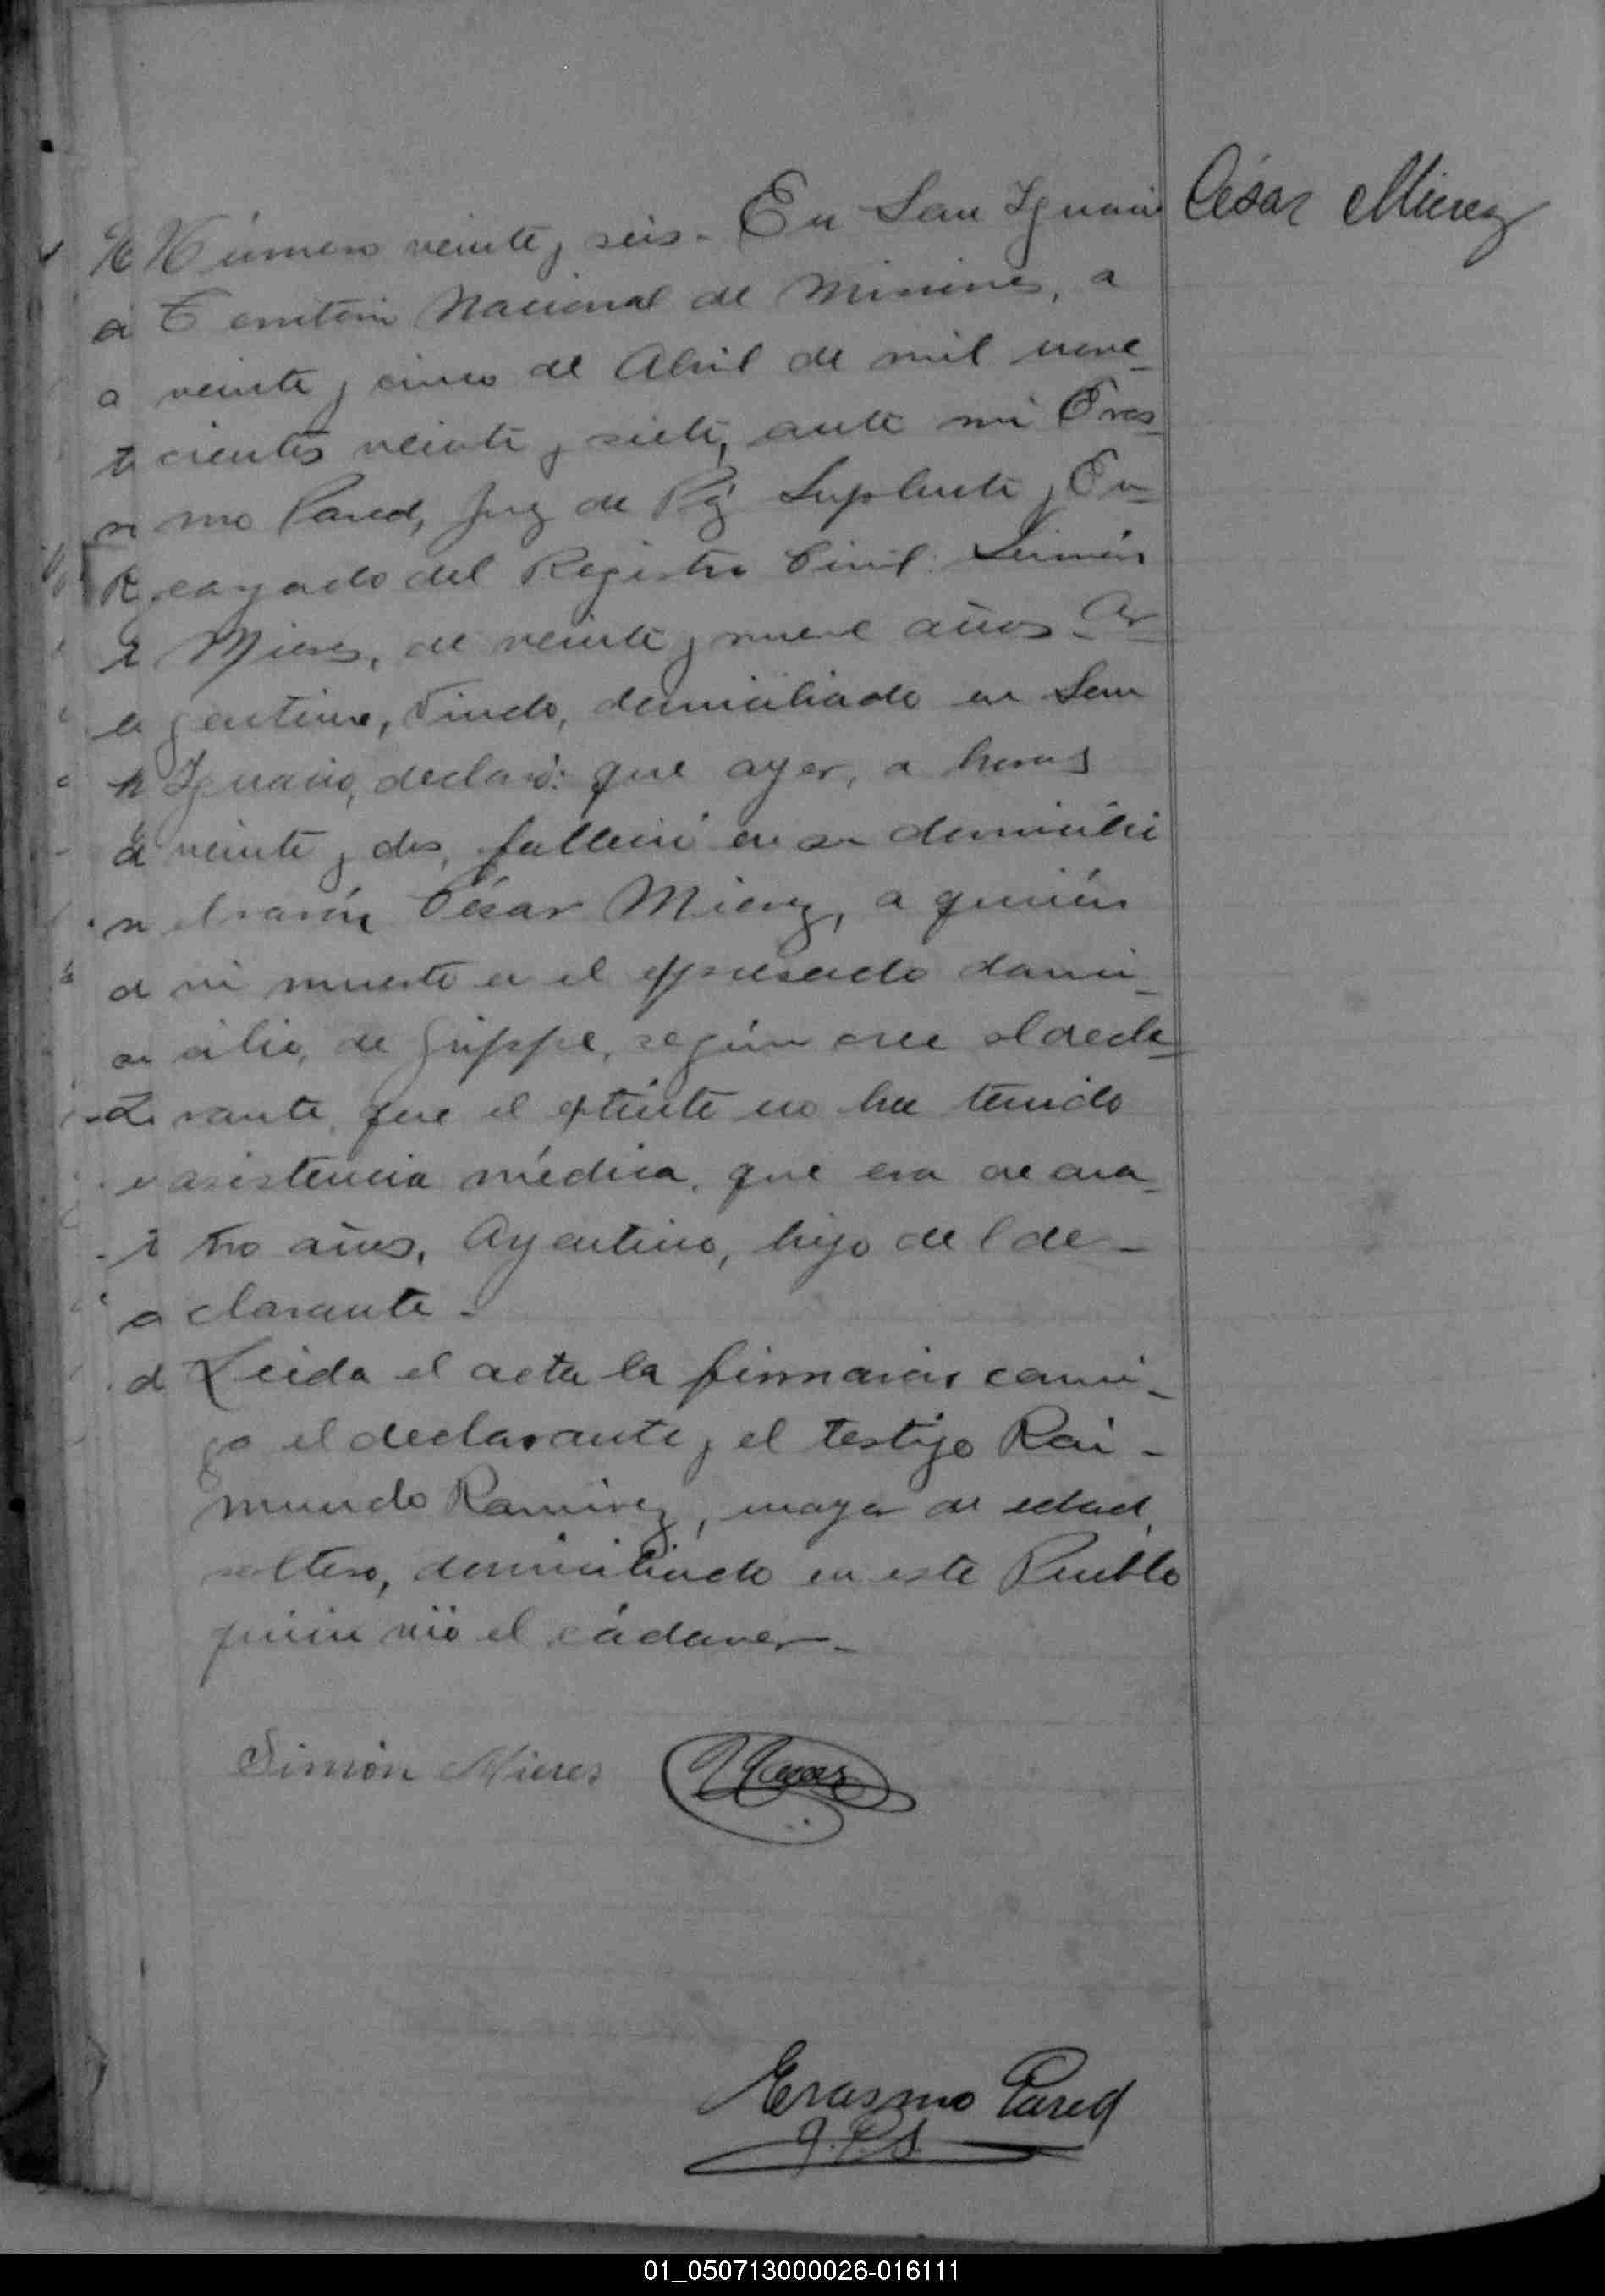 César Mierez
Número veinte y seis. En San Ignacio
Territorio Nacional de Misiones, a
veinte y cinco de Abril de mil nove-
cientos veinte y siete, ante mi Eras-
mo Pared, Juez de Paz Suplente y En-
cargado del Registro Civil: Simón
Mieres, de veinte y nueve años, Ar-
gentino, Viudo, domiciliado en San
Ignacio, declaró: que ayer, a horas
veinte y dos, falleció en su domicilio
el varón César Mierez, a quién
vió muerto en el expresado domi-
cilio, de grippe, según cree el decla-
rante, que el extinto no ha tenido
asistencia médica, que era de cua-
tro años, Argentino, hijo del de-
clarante.
Leida el acta la firmarón conmi-
go el declarante y el testigo Rai-
mundo Ramirez, mayor de edad,
soltero, domiciliado en este Pueblo
quien vió el cádaver.
Simón Mieres
Erasmo Pared
J.P.S.
01_050713000026-016111